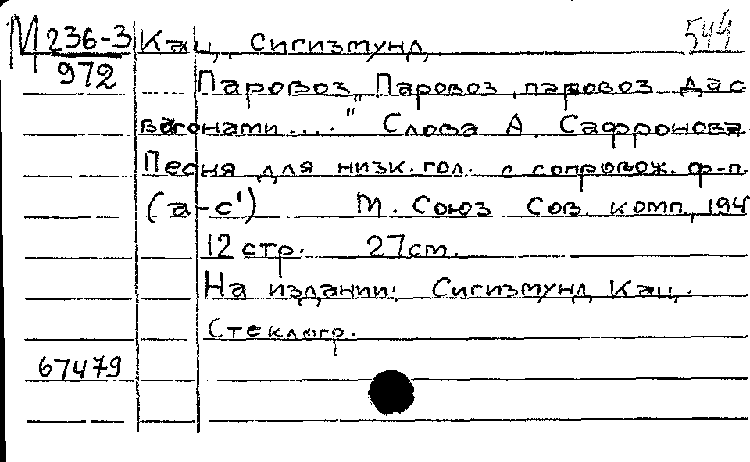 М 236-3 Кац, Сигизмунд 544
972 Паровоз „Паровоз, паровоз да с
вагонами...." Слова А. Сафронова
Песня для низк. гол. с сопровож. ф-п.
(а-с') М. Союз Сов. комп., 194
12 стр. 27 cm.
На издании: Сигизмунд Кац.
Стеклогр.
67479